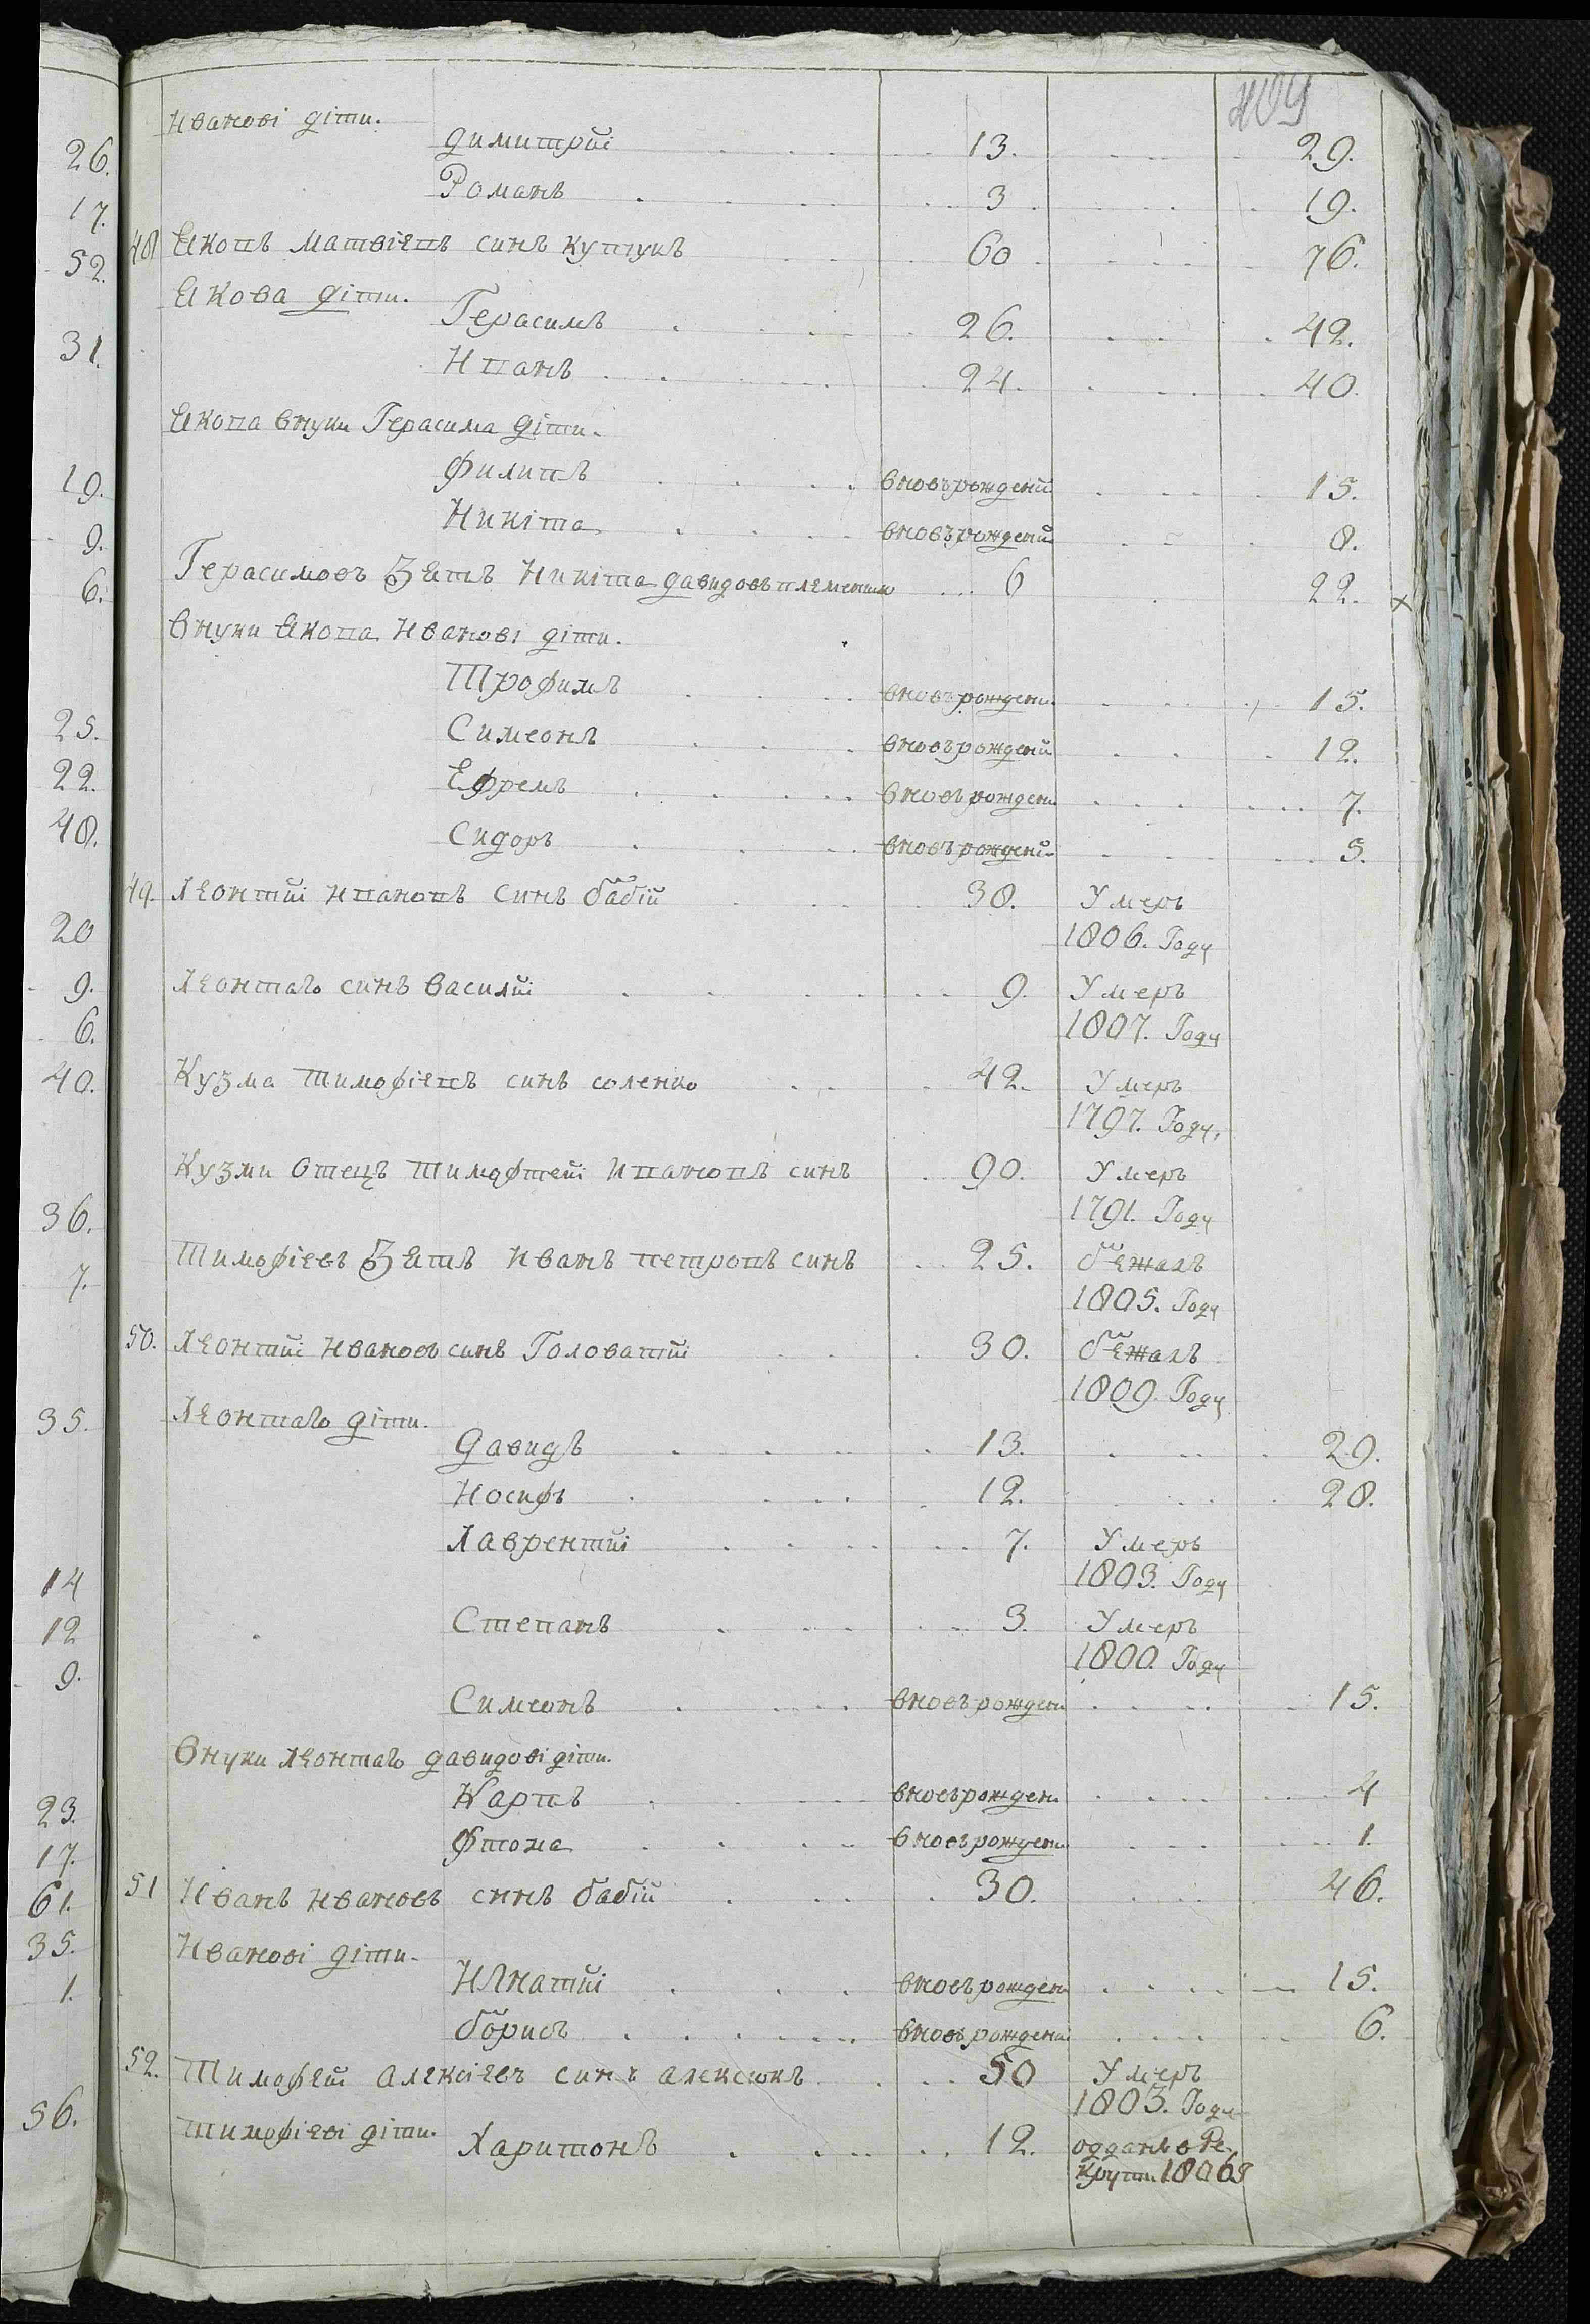 409
26.
17.
52.
31.
19.
9.
6.
25.
22.
48.
20
9.
6.
40.
36.
7.
35.
14
12
9.
23.
17.
61.
35.
1.
56.
Иванові діти.
Димитрій 13. 29.
Романъ 3 19.
48 Яковъ Матвіевъ синъ 60 76.
Якова діти.
Герасимъ 26. 42.
Иванъ 24. 40.
Якова внуки Герасима діти.
Филипъ вновърождений 15.
Никіта вновърождений 8.
Герасимовъ Зять Никіта давидовъ 6 22. ×
Внуки Якова Иванові діти.
Трофимъ вновърождени 15.
Симеонъ вновърождений 12.
Ефремъ вновърождени 7.
Сидоръ вновърождений 5.
49. Леонтій Ивановъ Синъ бабій 38. Умеръ
1806. Году
Леонтаго синъ Василій 9. Умеръ
1807. Году
Кузма Тимофіевъ синъ соленко 42. Умеръ
1797. Году,
Кузми Отецъ Тимофтей Ивановъ синъ 90. Умеръ
1791. Году
Тимофіевъ Зять Иванъ петровъ синъ 25. бежалъ
1805. Году
50. Леонтій Ивановъ синъ Головатій 30. бежалъ
1809. Году
Леонтаго діти.
Давидъ 13. 29.
Иосифъ 12. 28.
Лаврентій 7. Умеръ
1803. Году
Степанъ 3. Умеръ
1800. Году
Симеонъ вновърождени 15.
Внуки Леонтаго давидові діти.
Карпъ вновърождени 4
Фтома вновърождени 1.
51 Иванъ Ивановъ синъ бабій 30. 46.
Иванові діти.
Игнатій вновърождени 15.
борисъ вновърождений 6.
52. Тимофей Алексіевъ синъ алексюкъ 50 Умеръ
1803. Году
Тимофіеві діти.
Харитонъ 12. одданъ в Ре-
крути 1806